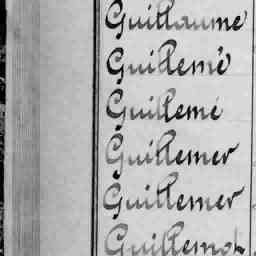 Guillaume
Guillemé
Guillemé
Guillemer
Guillemer
Guillemot